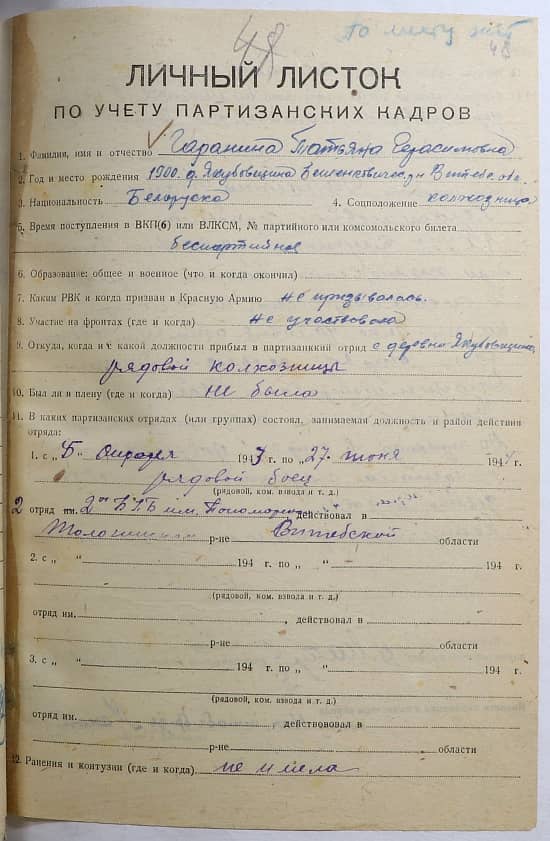 48
По листу
48
ЛИЧНЫЙ ЛИСТОК
ПО УЧЕТУ ПАРТИЗАНСКИХ КАДРОВ
1. Фамилия, имя и отчество Гаранина Татьяна Герасимовна
2. Год и место рождения 1900. д. Якубовщина Бешенковическ. р-н Витебс. обл.
3. Национальность Белоруска 4. Соцположение колхозница
5. Время поступления в ВКП(б) или ВЛКСМ, № партийного или комсомольского билета
беспартийная
6. Образование: общее и военное (что и когда окончил)
7. Каким РВК и когда призван в Красную Армию не призывалась.
8. Участие на фронтах (где и когда) не участвовала
9. Откуда, когда и с какой должности прибыл в партизанский отряд с деревни Якубовщина,
рядовой колхозницы
10. Был ли в плену (где и когда) не была
11. В каких партизанских отрядах (или группах) состоял, занимаемая должность и район действия
отряда:
1. с „ 1943 г. по „27" июня 1944 г.
рядовой боец
(рядовой, ком. взвода и т. д.)
2 отряд им. 2ой им. Пономаренко, действовал в
р-не Витебской области
2. с „ " 194 г. по „ " 194 г.
(рядовой, ком. взвода и т. д.)
отряд им. , действовал в
р-не области
3. с „ " 194 г. по „ " 194 г.
(рядовой, ком. взвода и т. д.)
отряд им. , действовал в
р-не области
12. Ранения и контузии (где и когда) не имела